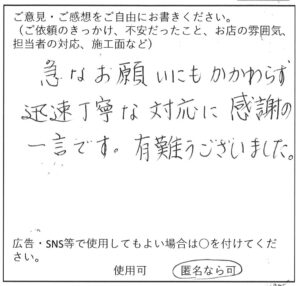 ご意見・ご感想をご自由にお書きください。
（ご依頼のきっかけ、不安だったこと、お店の雰囲気、
担当者の対応、施工面など）
急なお願いにもかかわらず
迅速丁寧な対応に感謝の
一言です。有難うございました。
広告・SNS等で使用してもよい場合は○を付けてくだ
さい。
使用可　匿名なら可